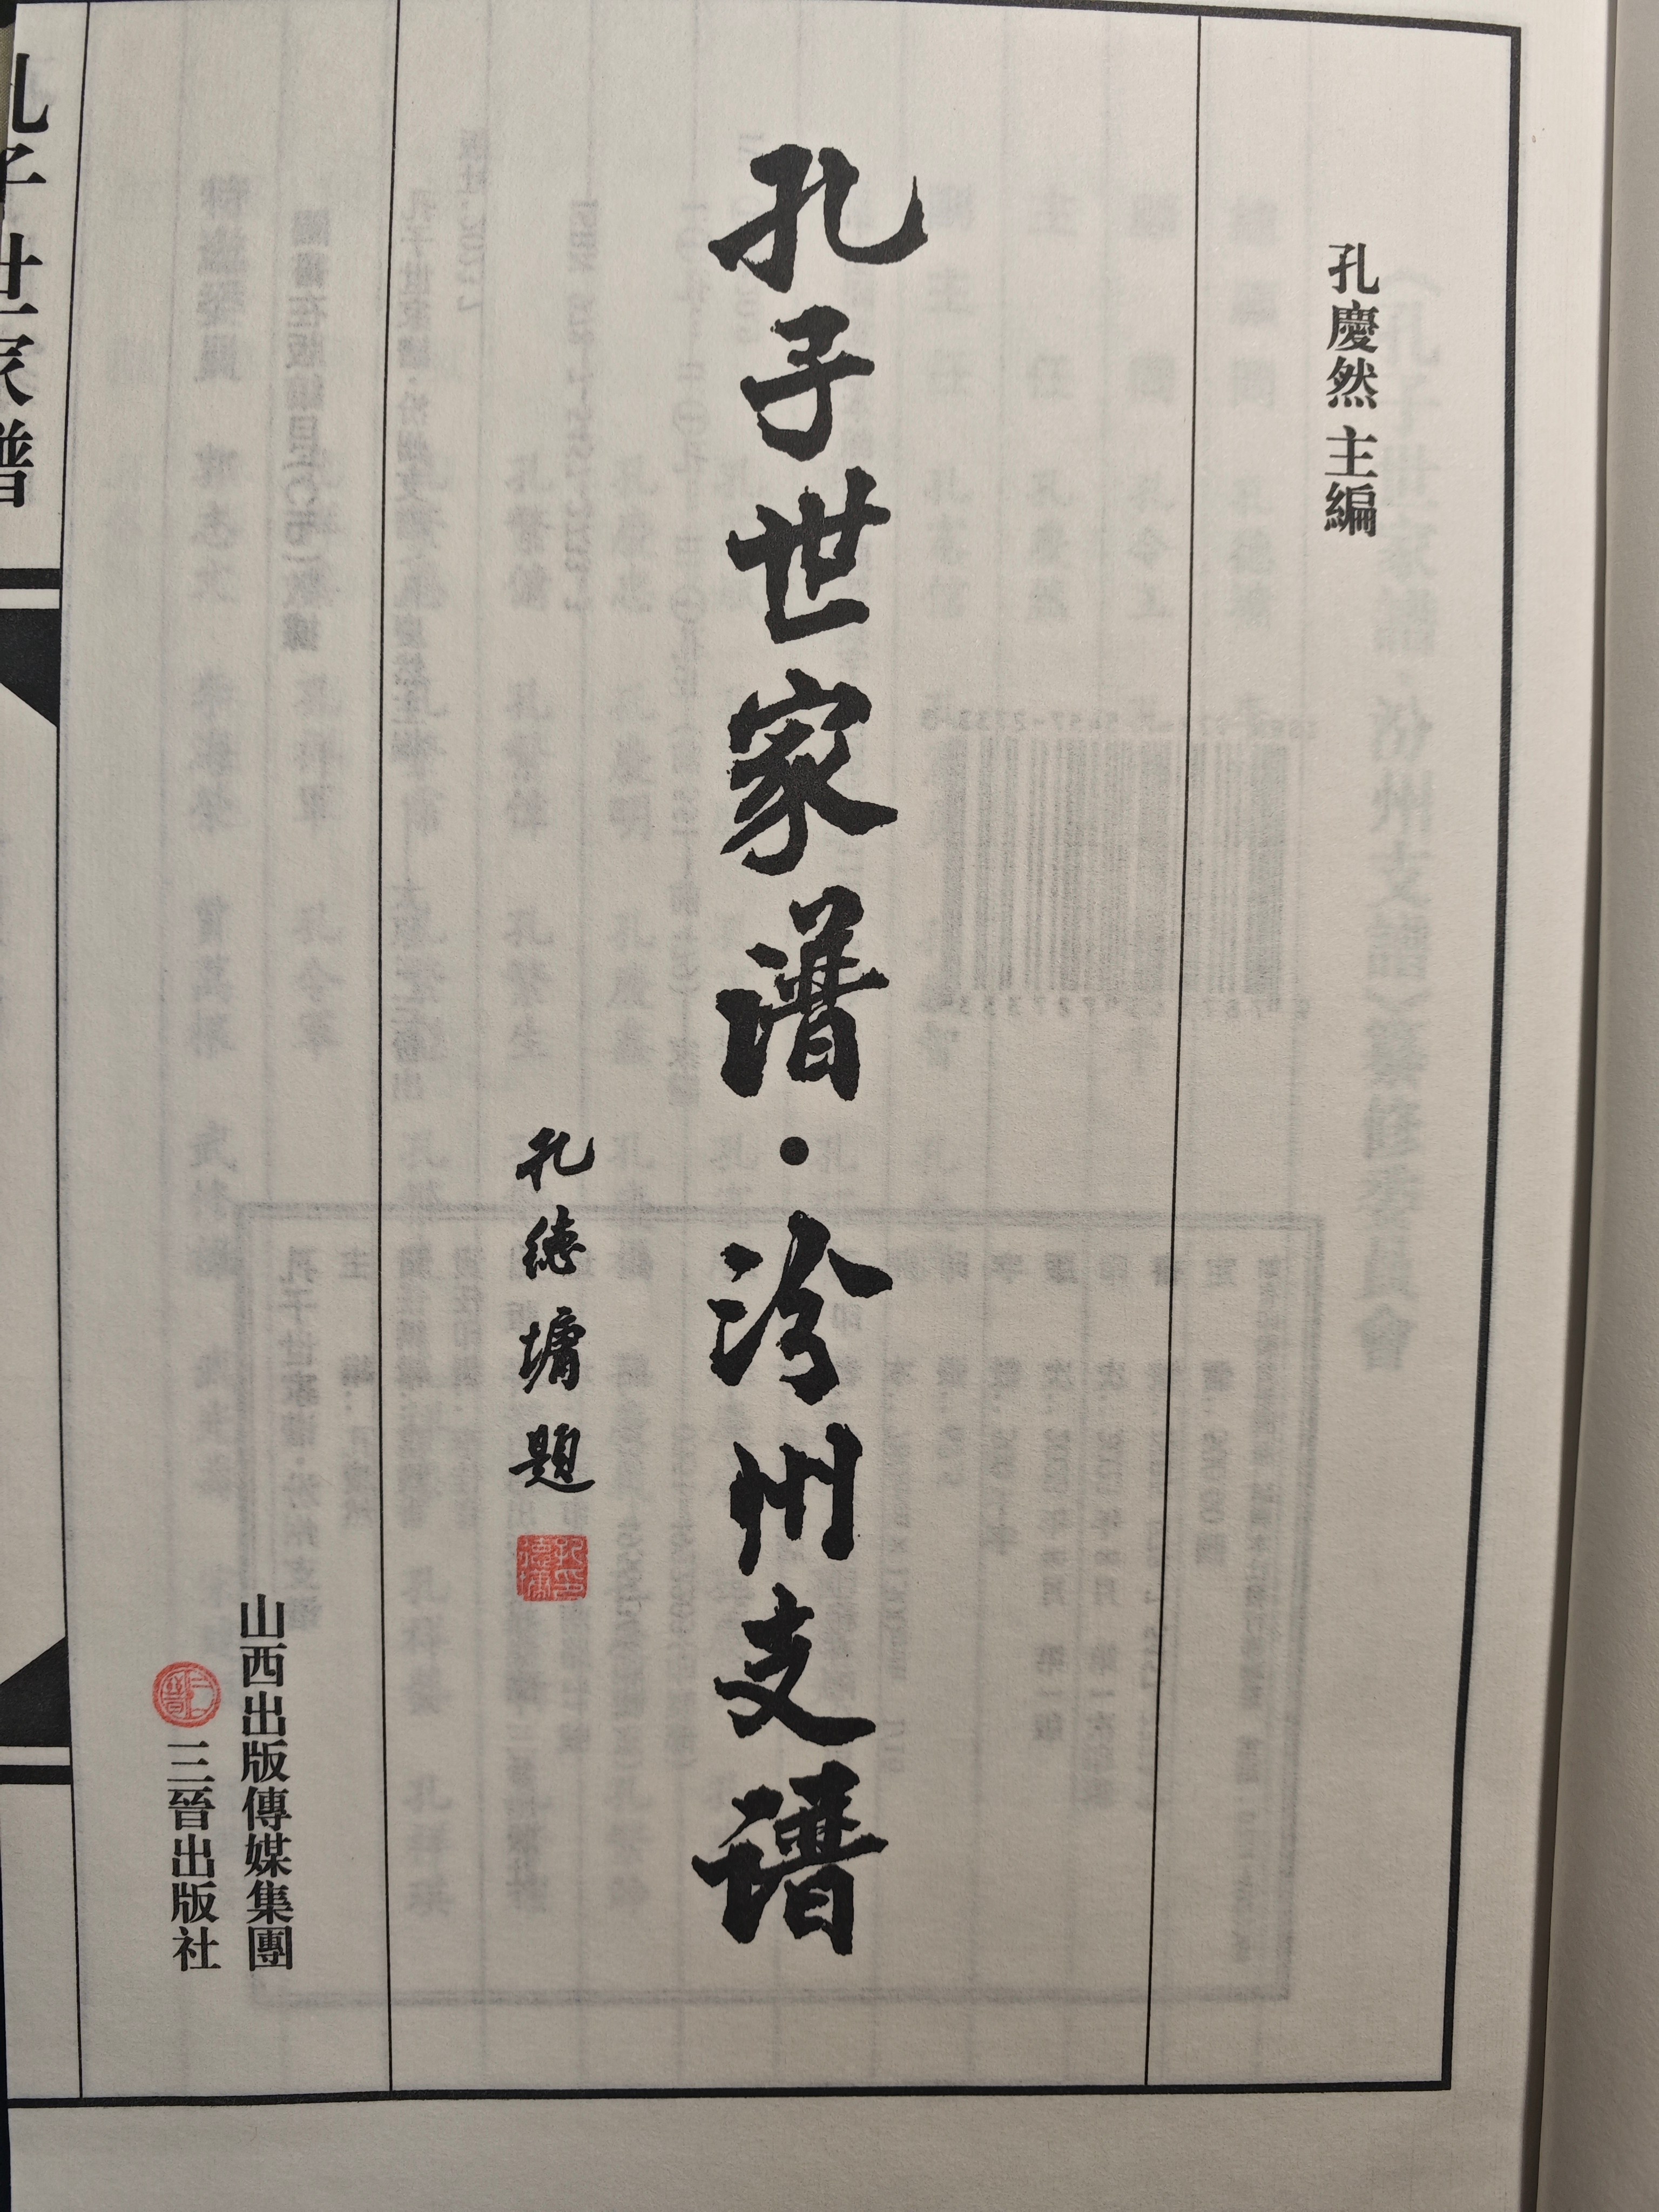 孔慶然 主編
孔子世家谱·汾州支谱
孔德墉題
孔德墉印
山西出版傳媒集團
三晉出版社
孔子世家譜